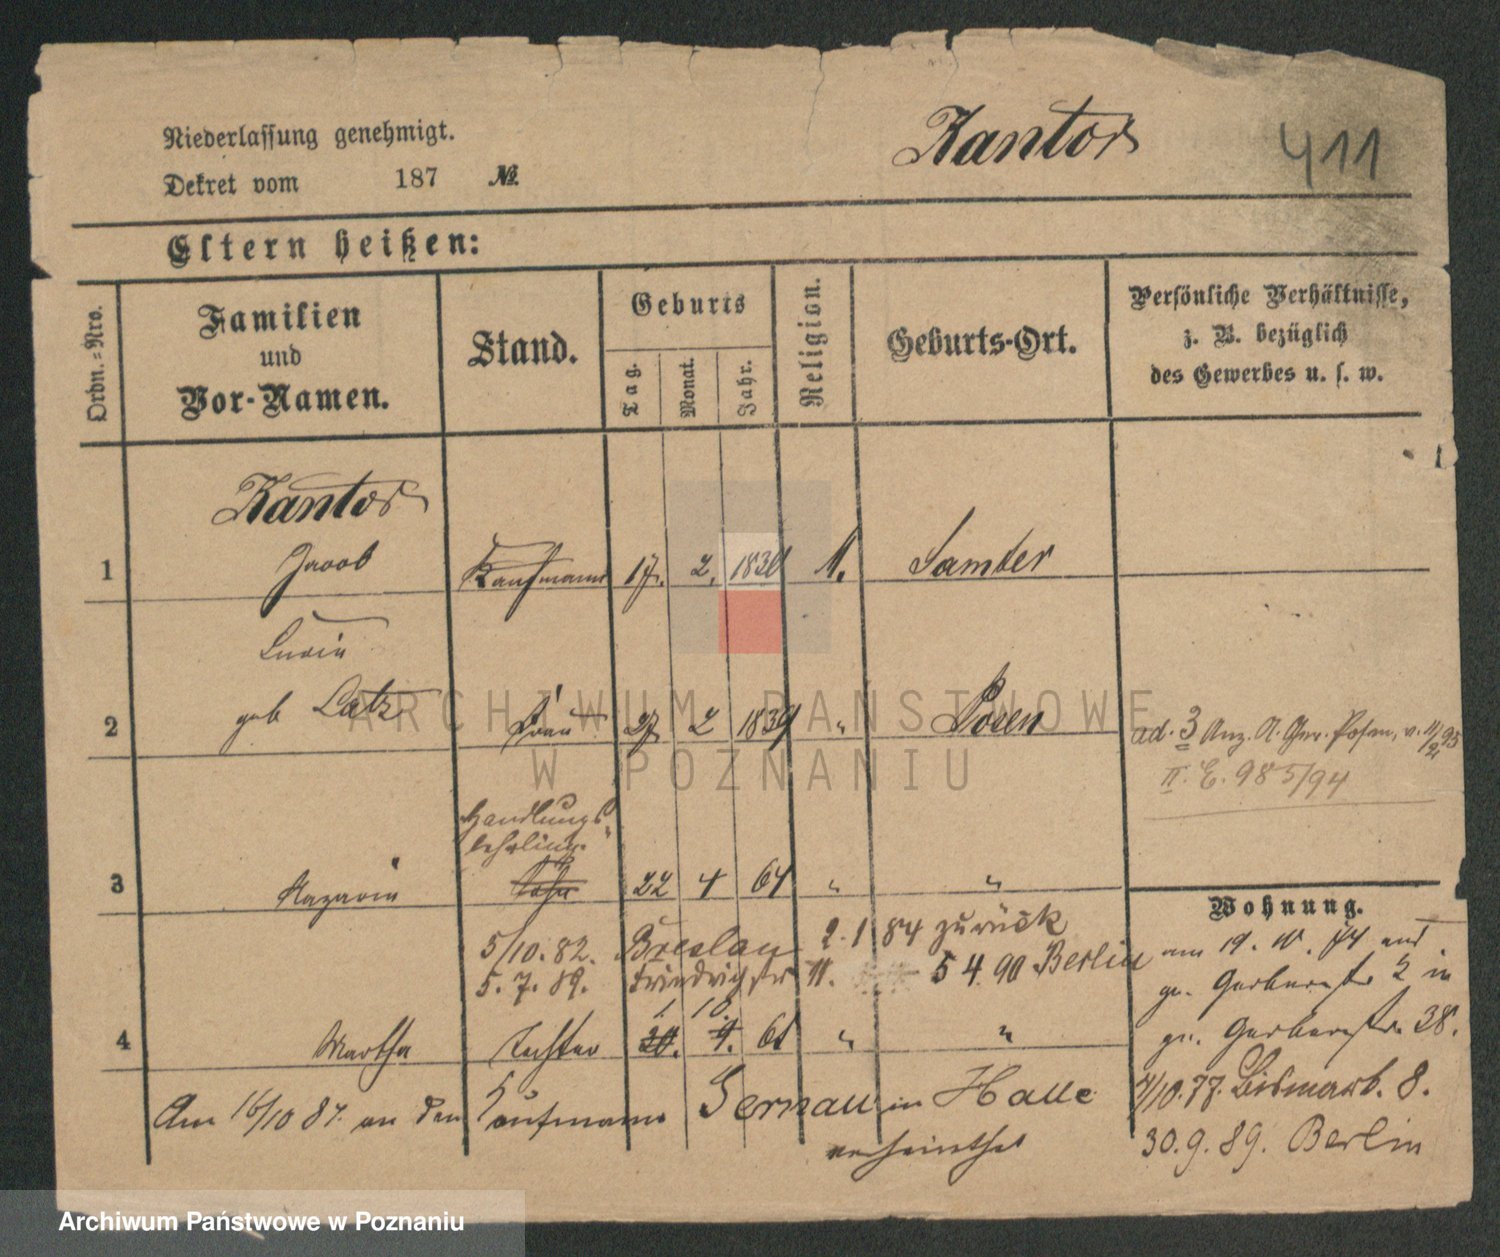 Niederlassung genehmigt.
Dekret vom 187 №
Kantor
411
Eltern heißen:
Ordn.=Nro.
Familien
und
Vor-Namen.
Stand.
Geburts
Tag.
Monat.
Jahr.
Religion.
Geburts-Ort.
Persönliche Verhältnisse,
z. B. bezüglich
des Gewerbes u. s. w.
Kantor
1 Jacob Kaufmann 17. 2. 1830 M. Samter
2 geb Latz Frau 27 2 1839 " Posen
ad. 3 Anz. A. Ger. Posen, v. 11/2 95
II. E. 985/94
Handlungs-
lehrling
3 Sohn 22 4 64 " "
Wohnung.
5/10. 82. Breslau 2. 1 84 zurück
5. 7. 89. Friedrichstr 11. 5 4. 90 Berlin
am 19. 10. 74 und
gr. Gerberstr 2 in
1. 10.
4 Martha Tochter 20. 4. 61 " "
gr. Gerberstr. 38.
Am 16/10 87. an den Kaufmann Gernau in Halle
verheirathet
4/10. 77. Bismark. 8.
30. 9. 89. Berlin
ARCHIWUM PAŃSTWOWE
W POZNANIU
Archiwum Państwowe w Poznaniu